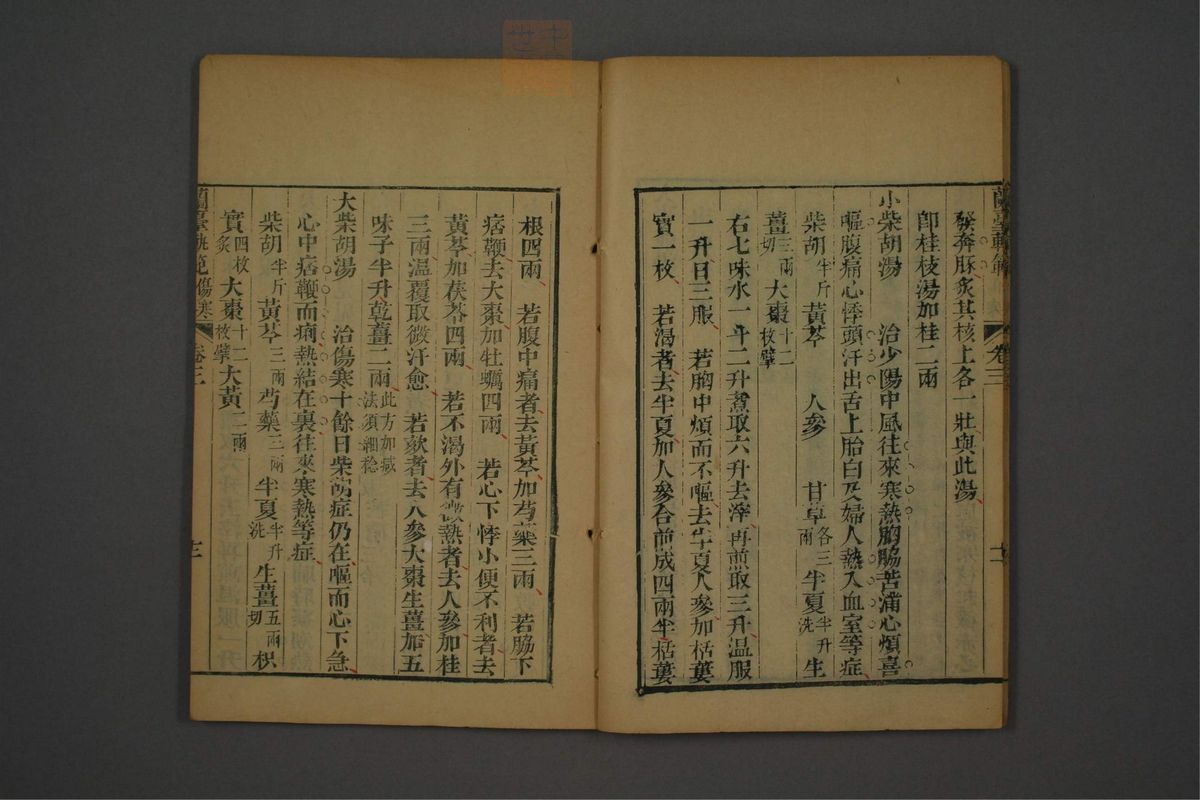 發奔豚灸其核上各一壯與此湯
卽桂枝湯加桂二兩
小柴胡湯　治少陽中風往來寒熱胸脇苦滿心煩喜
嘔腹痛心悸頭汗出舌上胎白及婦人熱入血室等症
柴胡半斤　黃芩　人參　甘草各三兩　半夏半升洗　生
薑三兩切　大棗十二枚擘
右七味水一斗二升煮取六升去滓再煎取三升温服
一升日三服　若胸中煩而不嘔去半夏人參加栝蔞
實一枚　若渴者去半夏加人參合前成四兩半栝蔞
根四兩　若腹中痛者去黃芩加芍藥三兩　若脇下
痞鞕去大棗加牡蠣四兩　若心下悸小便不利者去
黃芩加茯苓四兩　若不渴外有微熱者去人參加桂
三兩温覆取微汗愈　若欬者去人參大棗生薑加五
味子半升乾薑二兩此方加减法須細稔
大柴胡湯　治傷寒十餘日柴胡症仍在嘔而心下急
心中痞鞕而痢熱結在裏往來寒熱等症
柴胡半斤　黃芩三兩　芍藥三兩　半夏半升洗　生薑五兩切　枳
實四枚炙　大棗十二枚擘　大黃二兩
蘭臺軌範傷寒　卷三